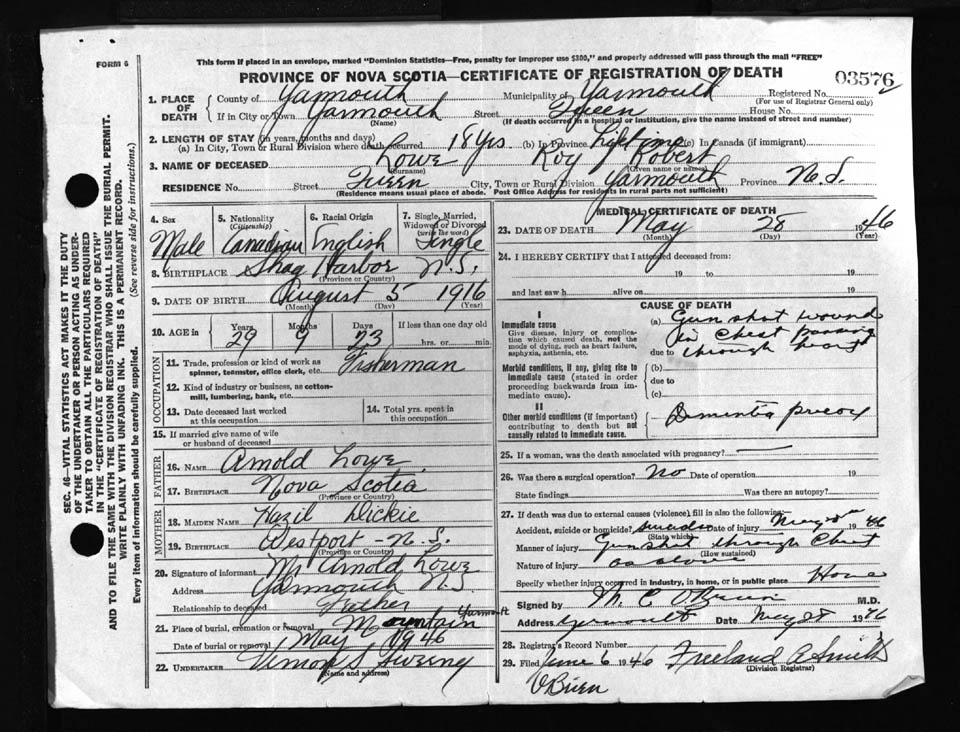 FORM 6
This form if placed in an envelope, marked "Dominion Statistics—Free, penalty for improper use $300," and properly addressed will pass through the mail "FREE"
PROVINCE OF NOVA SCOTIA—CERTIFICATE OF REGISTRATION OF DEATH
03576
1. PLACE OF DEATH
County of Yarmouth Municipality of Yarmouth Registered No.
(For use of Registrar General only)
If in City or Town Yarmouth Street Green House No.
(Name) (If death occurred in a hospital or institution, give the name instead of street and number)
2. LENGTH OF STAY (in years, months and days)
(a) In City, Town or Rural Division where death occurred 18 Yrs (b) In Province Lifetime (c) In Canada (if immigrant)
3. NAME OF DECEASED Lowe Roy Robert
(Surname) (Given name or names)
RESIDENCE No. Street Green City, Town or Rural Division Yarmouth Province N.S.
(Residence means usual place of abode. Post Office Address for residents in rural parts not sufficient)
4. Sex 5. Nationality (Citizenship) 6. Racial Origin 7. Single, Married, Widowed or Divorced (write the word)
Male Canadian English Single
8. BIRTHPLACE Shag Harbor N.S.
(Province or Country)
9. DATE OF BIRTH August 5 1916
(Month) (Day) (Year)
10. AGE in Years Months Days If less than one day old
29 9 23 hrs. or min.
OCCUPATION
11. Trade, profession or kind of work as spinner, teamster, office clerk, etc. Fisherman
12. Kind of industry or business, as cotton-mill, lumbering, bank, etc.
13. Date deceased last worked at this occupation 14. Total yrs. spent in this occupation
15. If married give name of wife or husband of deceased
FATHER
16. NAME Arnold Lowe
17. BIRTHPLACE Nova Scotia
(Province or Country)
MOTHER
18. MAIDEN NAME Hazil Dickie
19. BIRTHPLACE Westport - N.S.
(Province or Country)
20. Signature of informant Mr Arnold Lowe
Address Yarmouth N.S.
Relationship to deceased Father
21. Place of burial, cremation or removal Mountain Yarmouth
Date of burial or removal May 1946
22. UNDERTAKER Vernon S Sweeny
(Name and address)
MEDICAL CERTIFICATE OF DEATH
23. DATE OF DEATH May 28 1946
(Month) (Day) (Year)
24. I HEREBY CERTIFY that I attended deceased from:
19 to 19
and last saw h alive on 19
CAUSE OF DEATH
I
Immediate cause
Give disease, injury or complication which caused death, not the mode of dying, such as heart failure, asphyxia, asthenia, etc.
(a) Gun shot wound
in Chest passing
due to through heart
Morbid conditions, if any, giving rise to immediate cause (stated in order proceeding backwards from immediate cause).
(b)
due to
(c)
II
Other morbid conditions (if important) contributing to death but not causally related to immediate cause.
Dementia precox
25. If a woman, was the death associated with pregnancy?
26. Was there a surgical operation? No Date of operation 19
State findings Was there an autopsy?
27. If death was due to external causes (violence) fill in also the following:—
Accident, suicide or homicide? suicide Date of injury May 28 1946
(State which)
Manner of injury Gunshot through Chest
(How sustained)
Nature of injury as above
Specify whether injury occurred in industry, in home, or in public place Home
Signed by M. C O'Brien M.D.
Address Yarmouth Date May 28 1946
28. Registrar's Record Number
29. Filed June 6 1946 Freeland A Smith
(Division Registrar)
O'Brien
SEC. 46—VITAL STATISTICS ACT MAKES IT THE DUTY
OF THE UNDERTAKER OR PERSON ACTING AS UNDER-
TAKER TO OBTAIN ALL THE PARTICULARS REQUIRED
IN THE "CERTIFICATE OF REGISTRATION OF DEATH"
AND TO FILE THE SAME WITH THE DIVISION REGISTRAR WHO SHALL ISSUE THE BURIAL PERMIT.
WRITE PLAINLY WITH UNFADING INK. THIS IS A PERMANENT RECORD.
Every item of information should be carefully supplied. (See reverse side for instructions.)